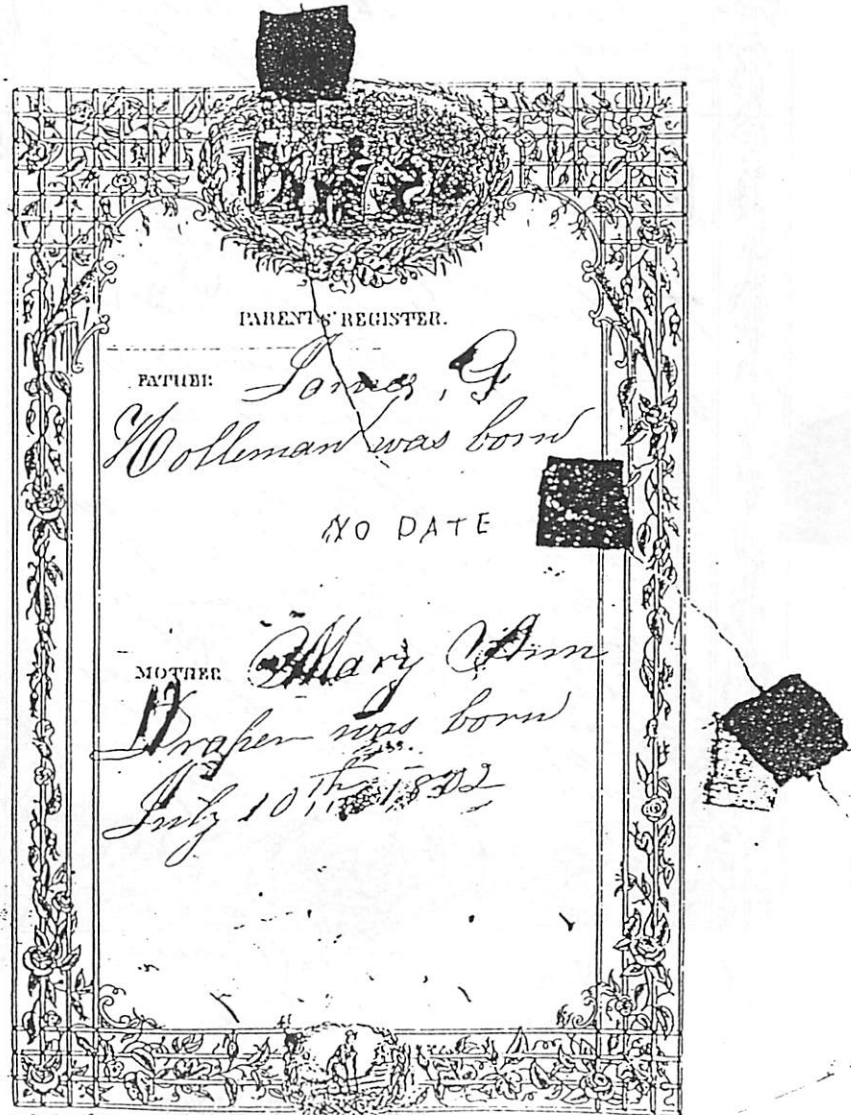 PARENTS' REGISTER.
FATHER James, G
Holleman was born
NO DATE
MOTHER Mary Ann
Draper was born
July 10th